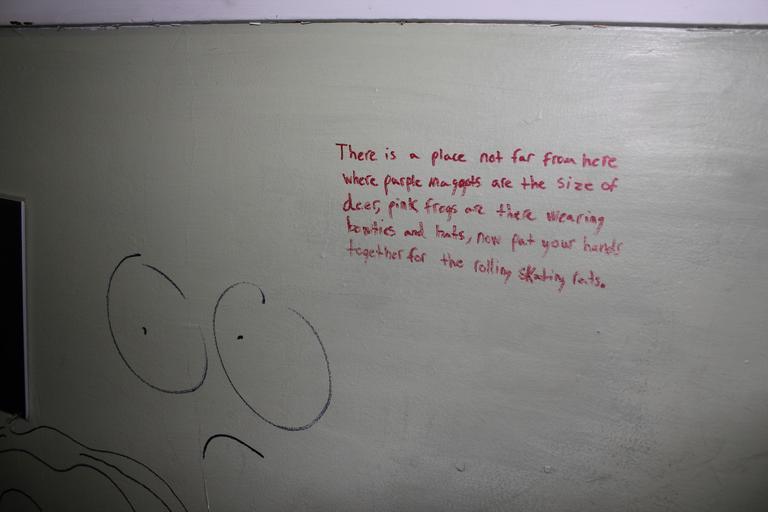 There is a place not far from here
where purple maggots are the size of
deer, pink frogs are there wearing
bowties and hats, now put your hands
together for the rolling skating rats.